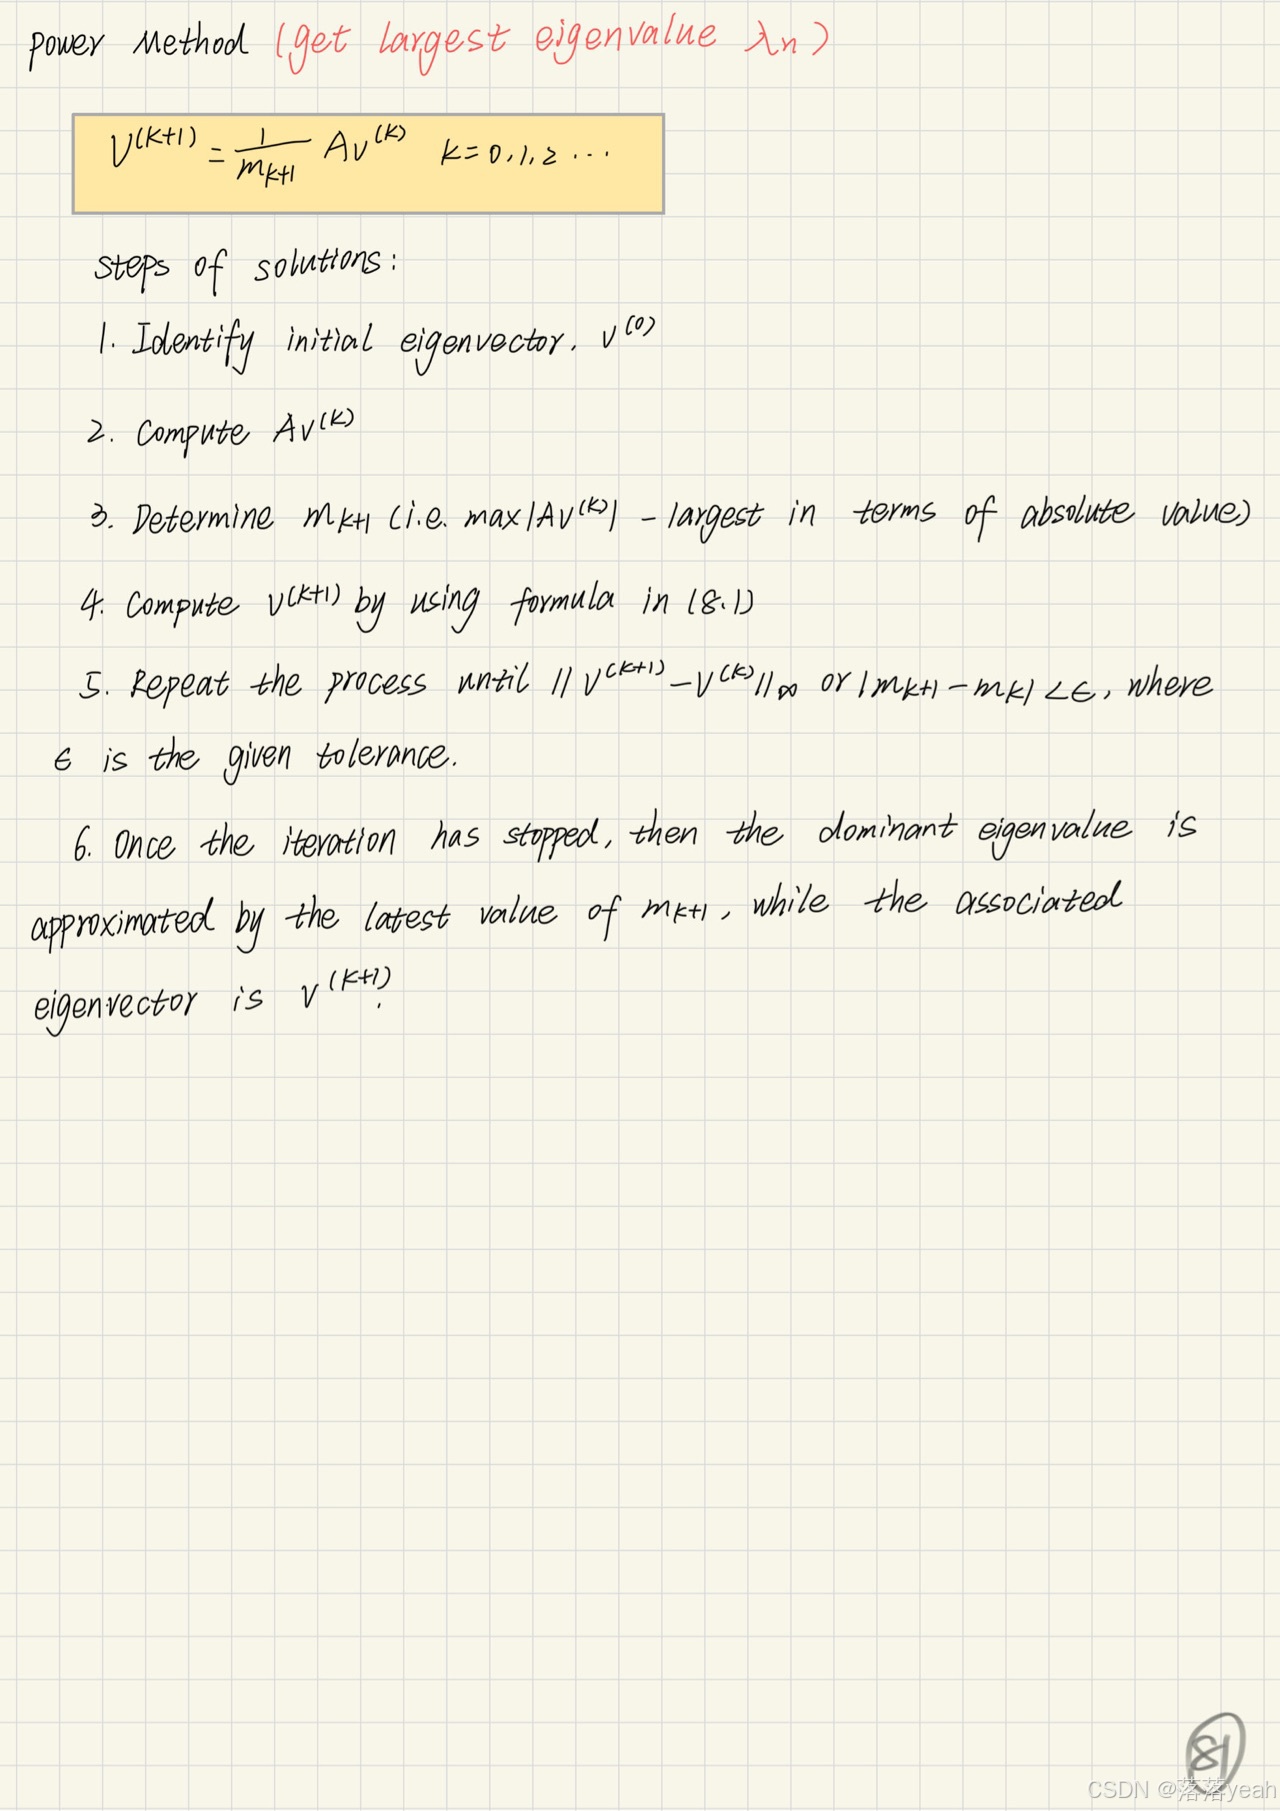 Power Method (get largest eigenvalue λn)
V^(k+1) = 1/m_k+1 Av^(k) k=0,1,2 ...
steps of solutions:
1. Identify initial eigenvector. v^(0)
2. Compute Av^(k)
3. Determine m_k+1 (i.e. max|Av^(k)| - largest in terms of absolute value)
4. Compute v^(k+1) by using formula in (8.1)
5. Repeat the process until ||V^(k+1) - V^(k)||∞ or |m_k+1 - m_k| < ϵ, where
ϵ is the given tolerance.
6. Once the iteration has stopped, then the dominant eigenvalue is
approximated by the latest value of m_k+1, while the associated
eigenvector is v^(k+1).
81
CSDN @落落yeah